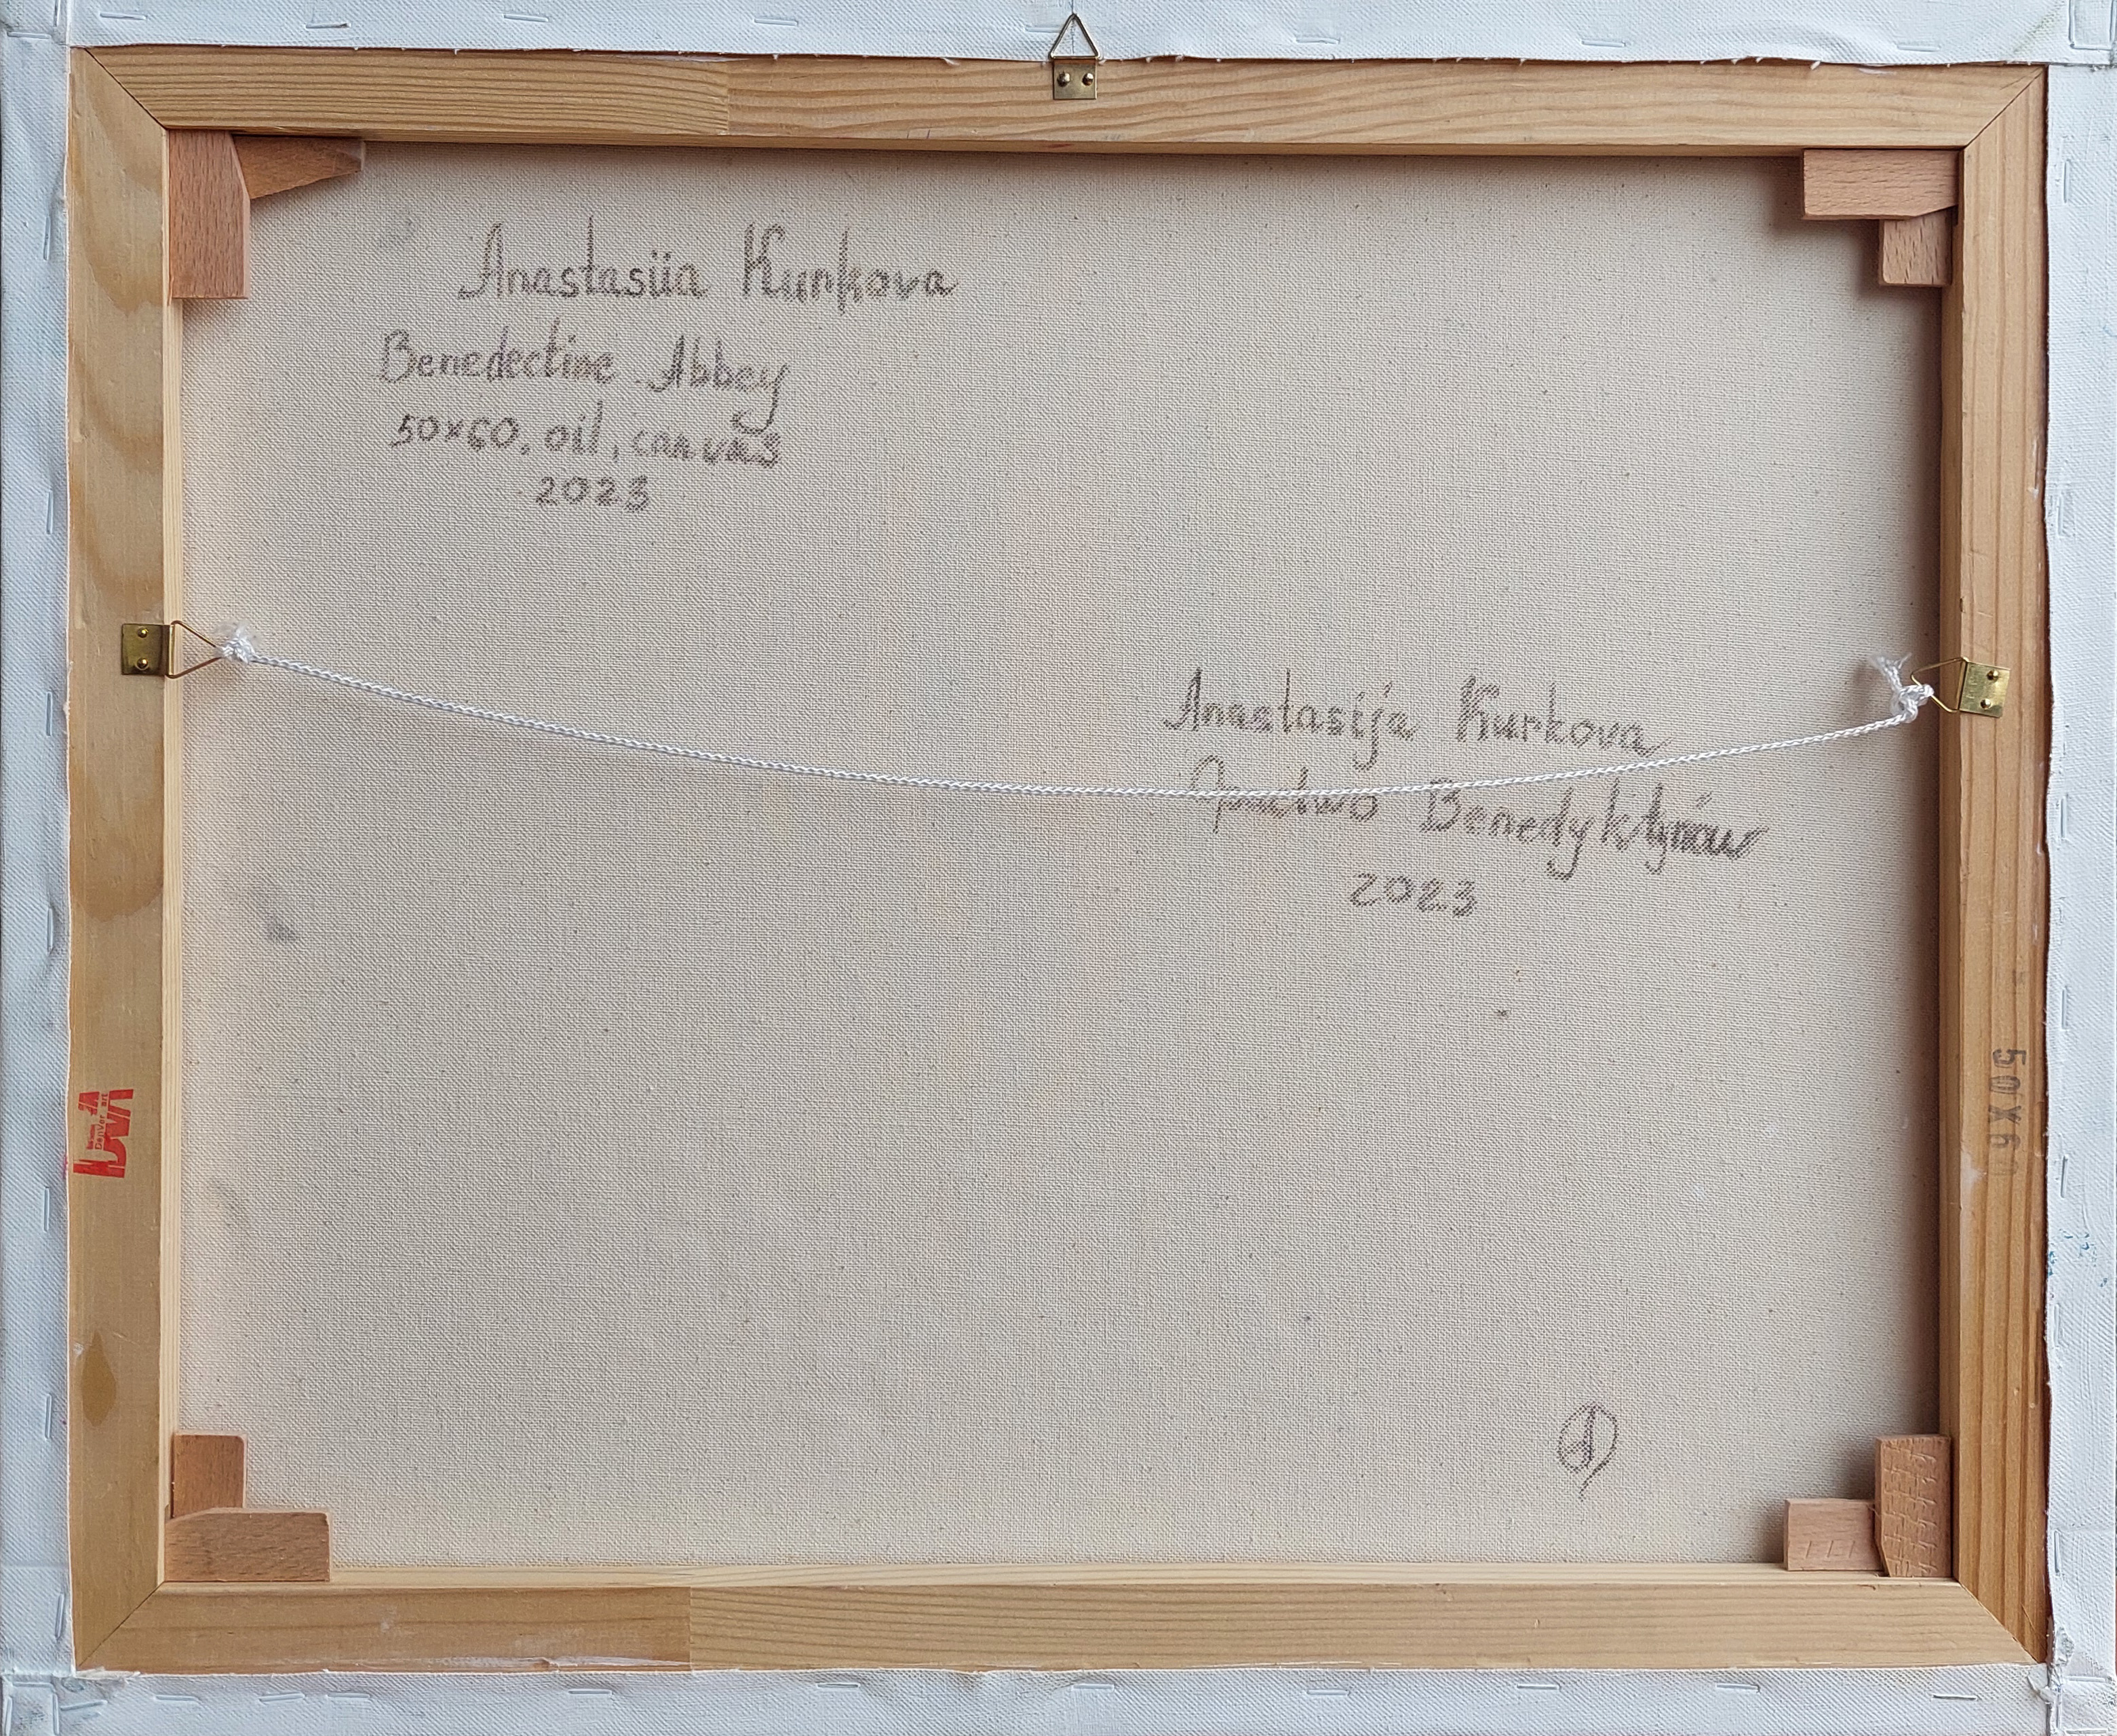 Anastasiia Kurkova
Benedectine Abbey
50x60, oil, canvas
2023
Anastasija Kurkova
Opactwo Benedyktynów
2023
50X60
DenVer art